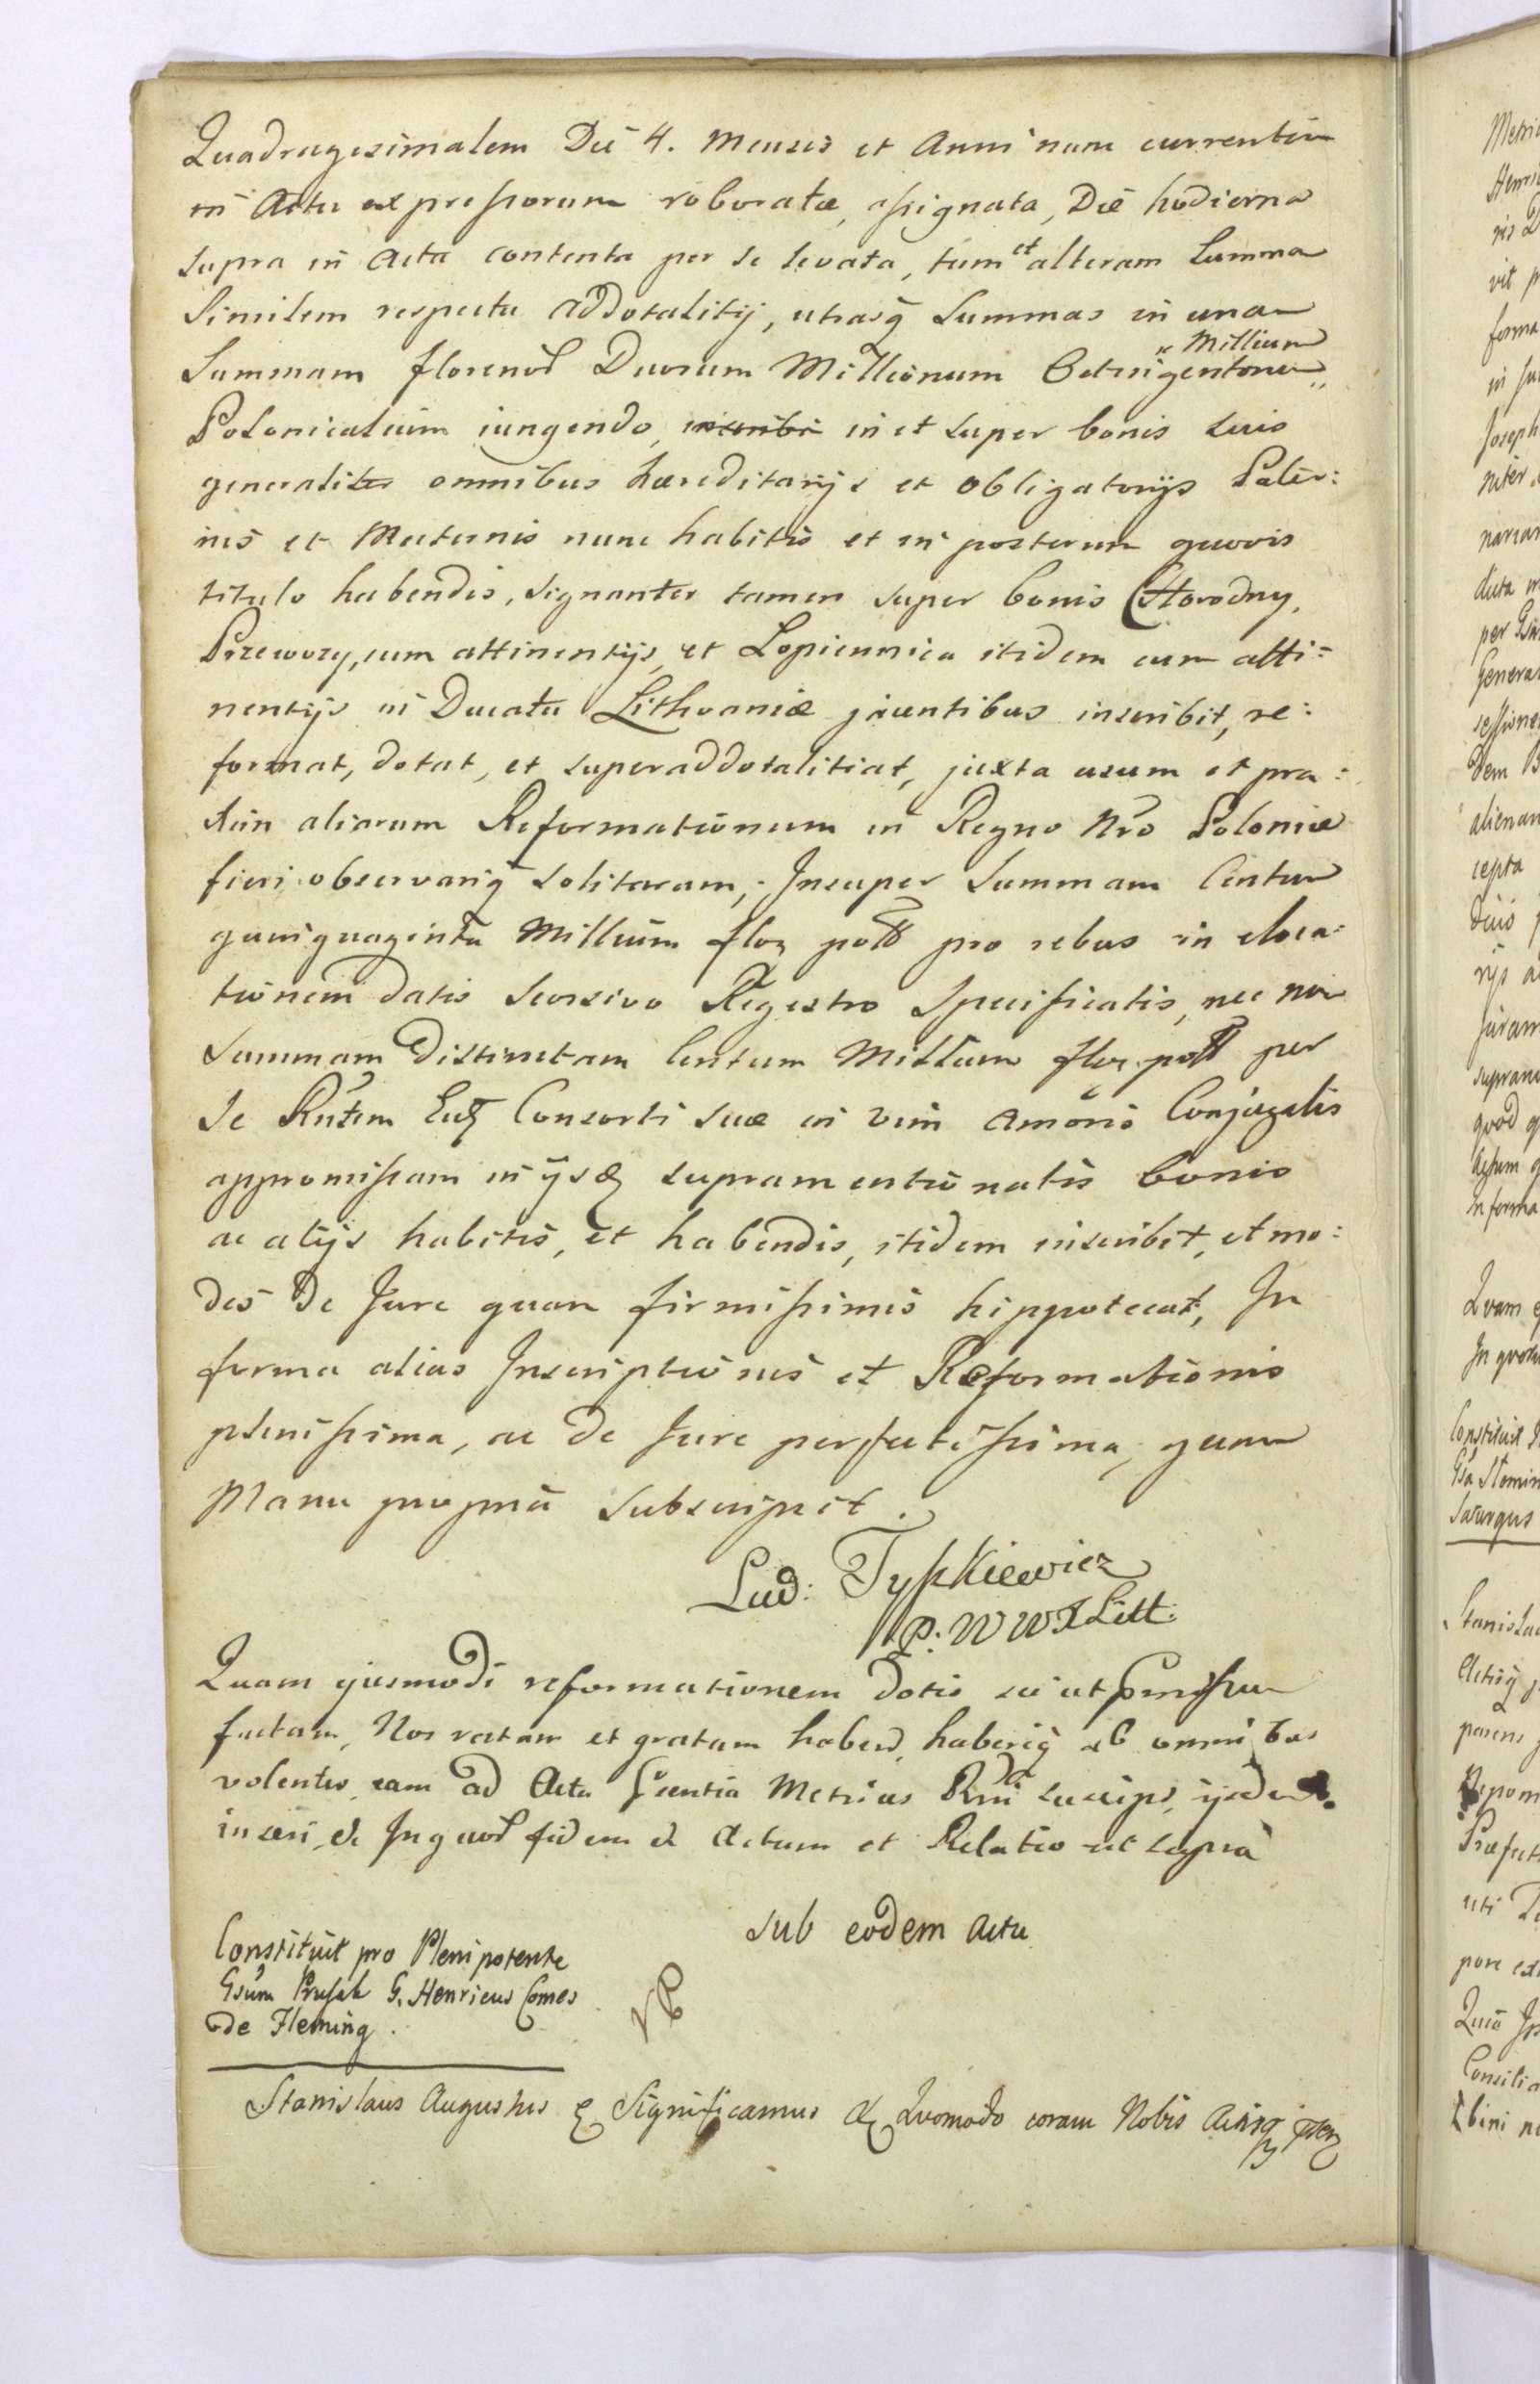 Quadragesimalem Die 4. Mensis et Anni nunc currentium
in Actu expressorum roboratæ, assignata, Die hodierna
supra in Acta contenta per se levata, tum et alteram Summa
Similem respectu addotalitij, utrasq Summas in unam
Summam florenor Duorum Millionum Octingentorum „Millium
Polonicalium iungendo, inscribi in et super bonis suis
generaliter omnibus hæreditarijs et obligatorijs Pater:
nis et Maternis nunc habitis et in posterum quovis
titulo habendis, signanter tamen super bonis Horodny,
Przewozy, cum attinentijs, et Lopiennica itidem cum atti=
nentijs in Ducatu Lithvaniæ jacentibus inscribit, re:
format, dotat, et superaddotalitiat, juxta usum et pra:
xim aliarum Reformationum in Regno Nro Poloniæ
fieri observariq solitarum; Insuper Summam Centum
quinquaginta Millium flor poll pro rebus in eloca:
tionem datis seorsivo Regestro Specificatis, nec non
Summam Distinctam Centum Millium flor. poll per
se Rntem Eidq Consorti suæ in vim Amoris Conjugalis
appromissam in ijsdq supramentionatis bonis
ac alijs habitis, et habendis, itidem inscribit, et mo:
dis de Jure quam firmissimis hippotecat, In
forma alias Inscriptionis et Reformationis
plenissima, ac de Jure perfectissima, quam
Manu propria subscripsit.
Lud: Tyszkiewicz
P. W W X Litt:
Quam ejusmodi reformationem dotis sic ut
factam, Nos ratam et gratam haberi, haberiq ab omnibus
volentes, eam ad Acta Metrices Rni suscipi, ijsdem
inseri & In quor fidem & Actum et Relatio ut supra
sub eodem actu
Constituit pro Plenipotente
Gsum Prusak G. Henricus Comes
de Fleming.
Stanislaus Augustus & Significamus & Quomodo coram Nobis Actisq